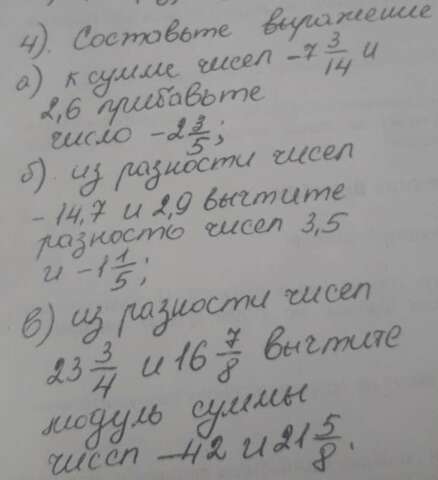 4). Составьте выражение
а) к сумме чисел -7 3/14 и
2,6 прибавьте
число -2 3/5;
б). из разности чисел
-14,7 и 2,9 вычтите
разность чисел 3,5
и -1 1/5;
в) из разности чисел
23 3/4 и 16 7/8 вычтите
модуль суммы
чисел -42 и 21 5/8.